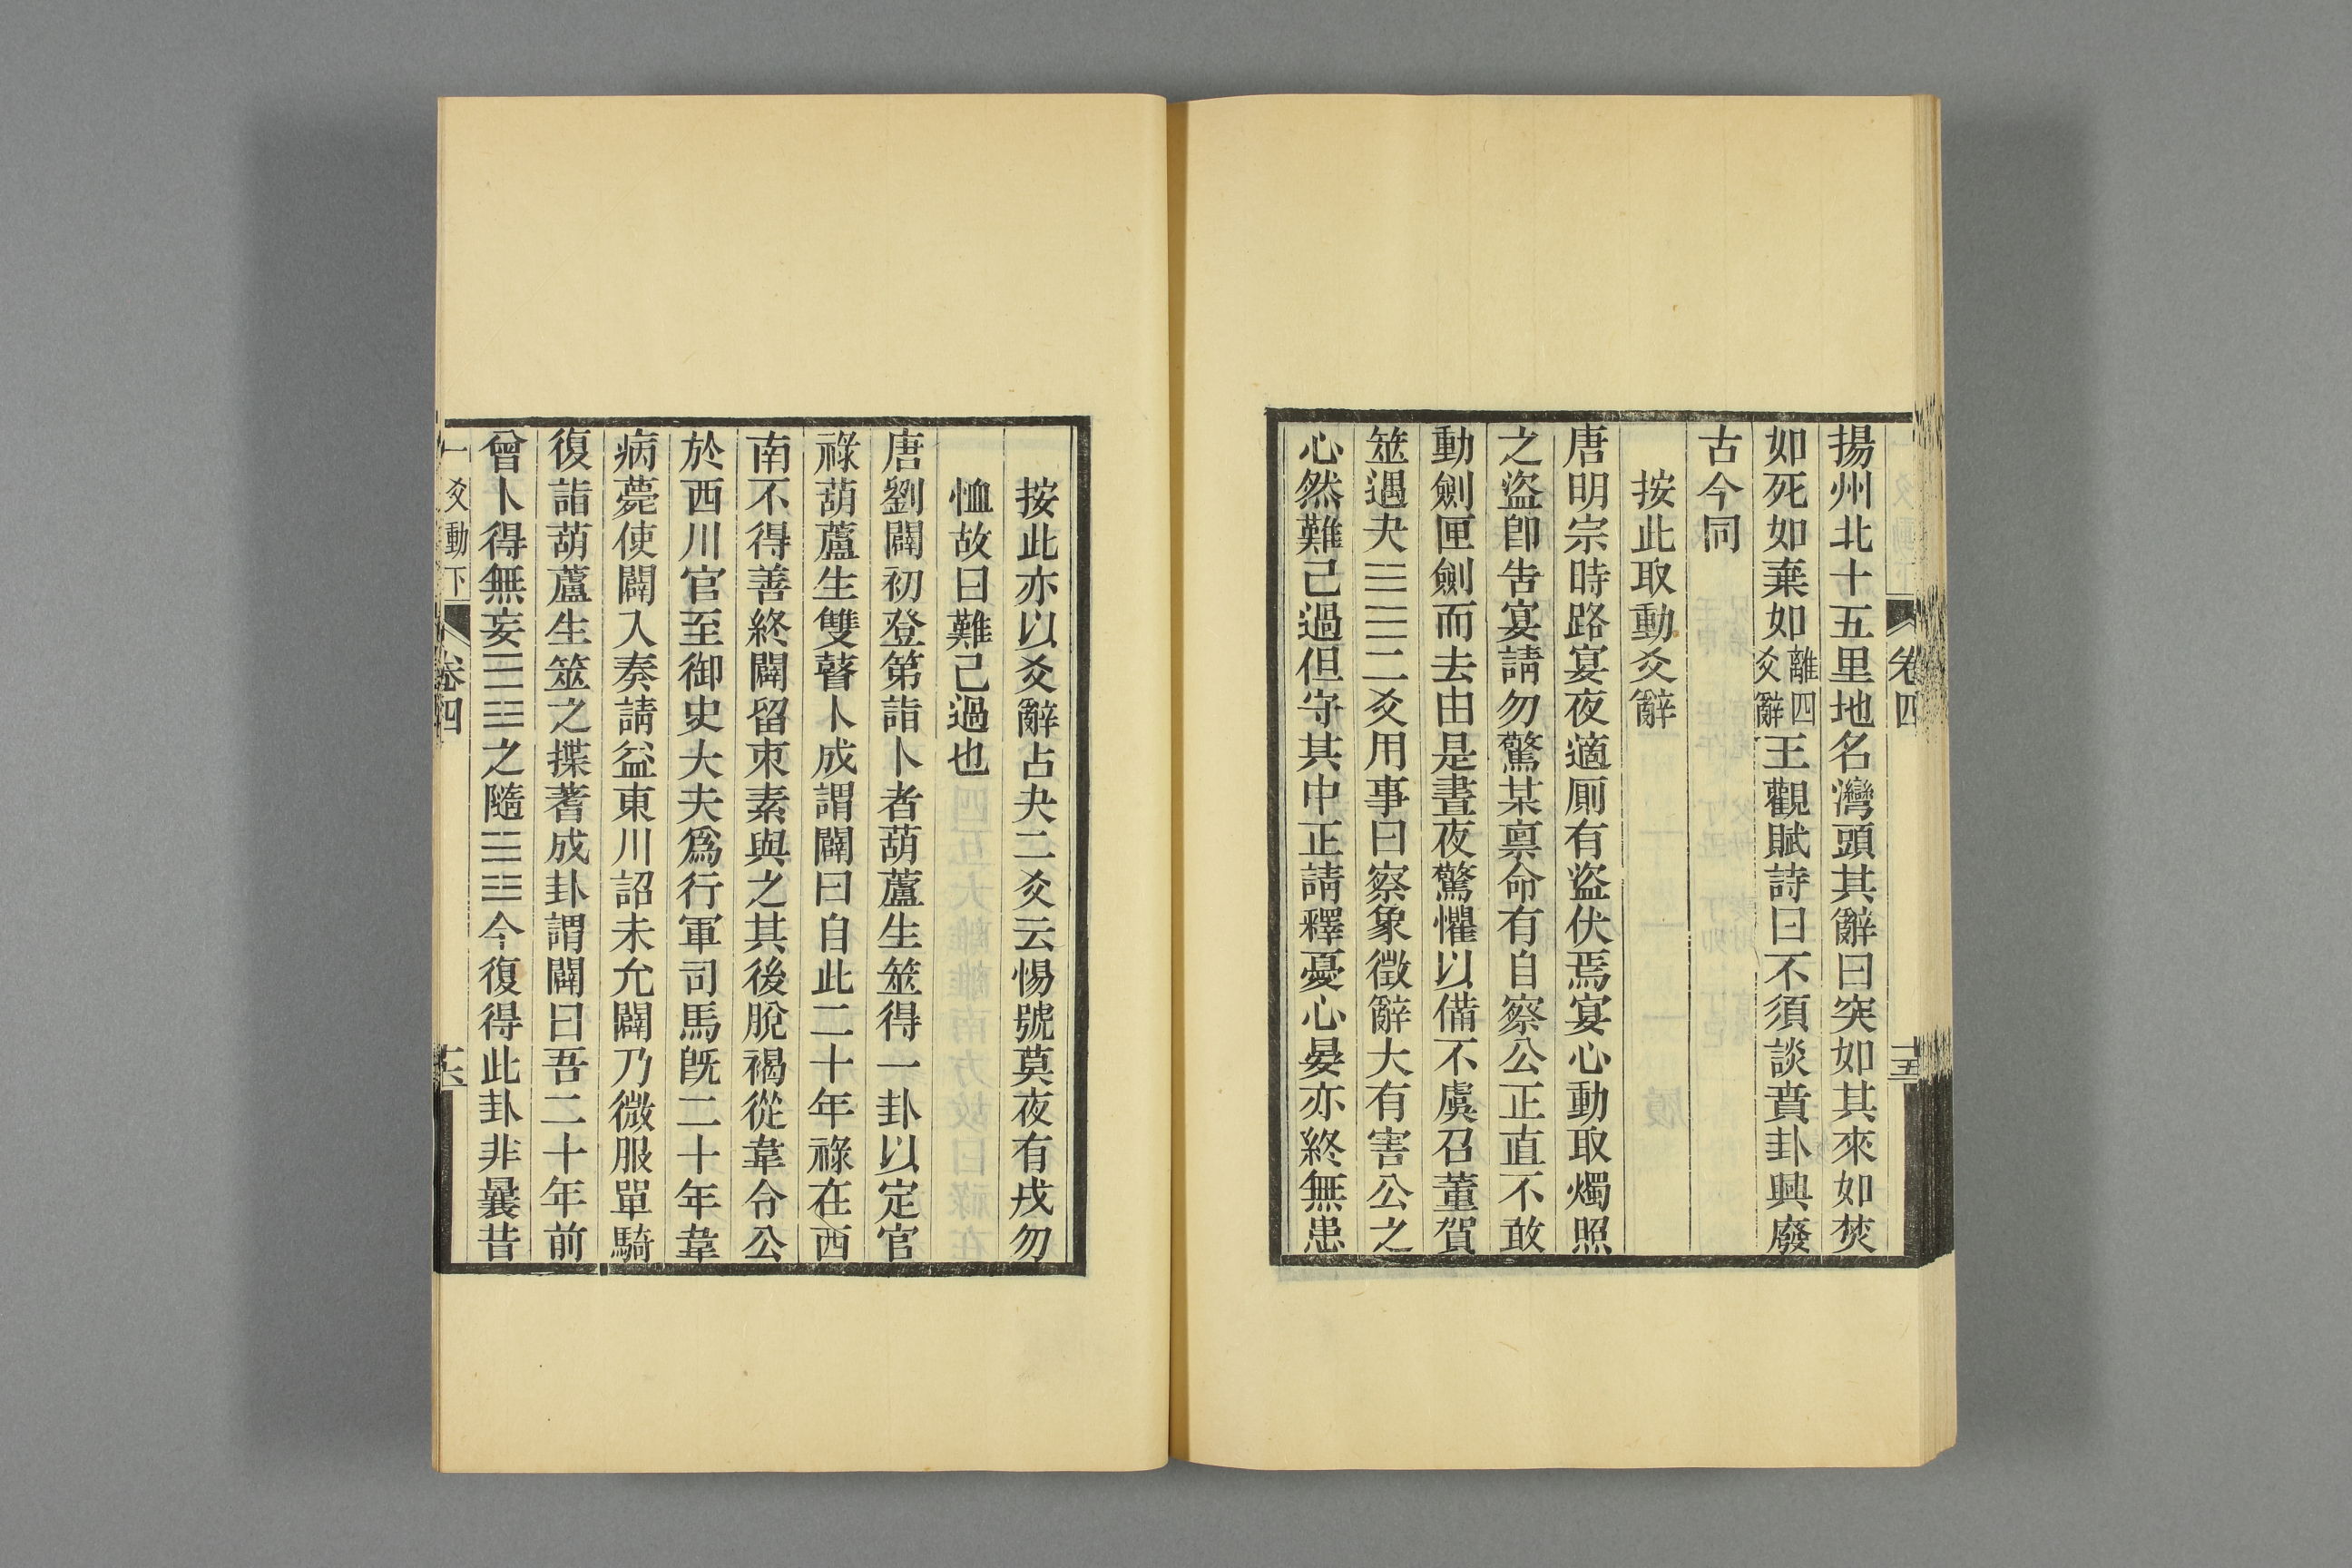 卷四
十五
揚州北十五里地名灣頭其辭曰突如其來如焚
如死如棄如離四爻辭王觀賦詩曰不須談賁卦興廢
古今同
按此取動爻辭
唐明宗時路宴夜適厠有盜伏焉宴心動取燭照
之盜卽告宴請勿驚某禀命有自察公正直不敢
動劍匣劍而去由是晝夜驚懼以備不虞召董賀
筮遇夬☱☰二爻用事曰察象徵辭大有害公之
心然難已過但守其中正請釋憂心晏亦終無患
按此亦以爻辭占夬二爻云惕號莫夜有戎勿
恤故曰難已過也
唐劉闢初登第詣卜者葫蘆生筮得一卦以定官
祿葫蘆生雙瞽卜成謂闢曰自此二十年祿在西
南不得善終闢留束素與之其後脫褐從韋令公
於西川官至御史大夫爲行軍司馬旣二十年韋
病薨使闢入奏請益東川詔未允闢乃微服單騎
復詣葫蘆生筮之揲蓍成卦謂闢曰吾二十年前
曾卜得無妄☰☳之隨☱☳今復得此卦非曩昔
一爻動下
卷四
十六